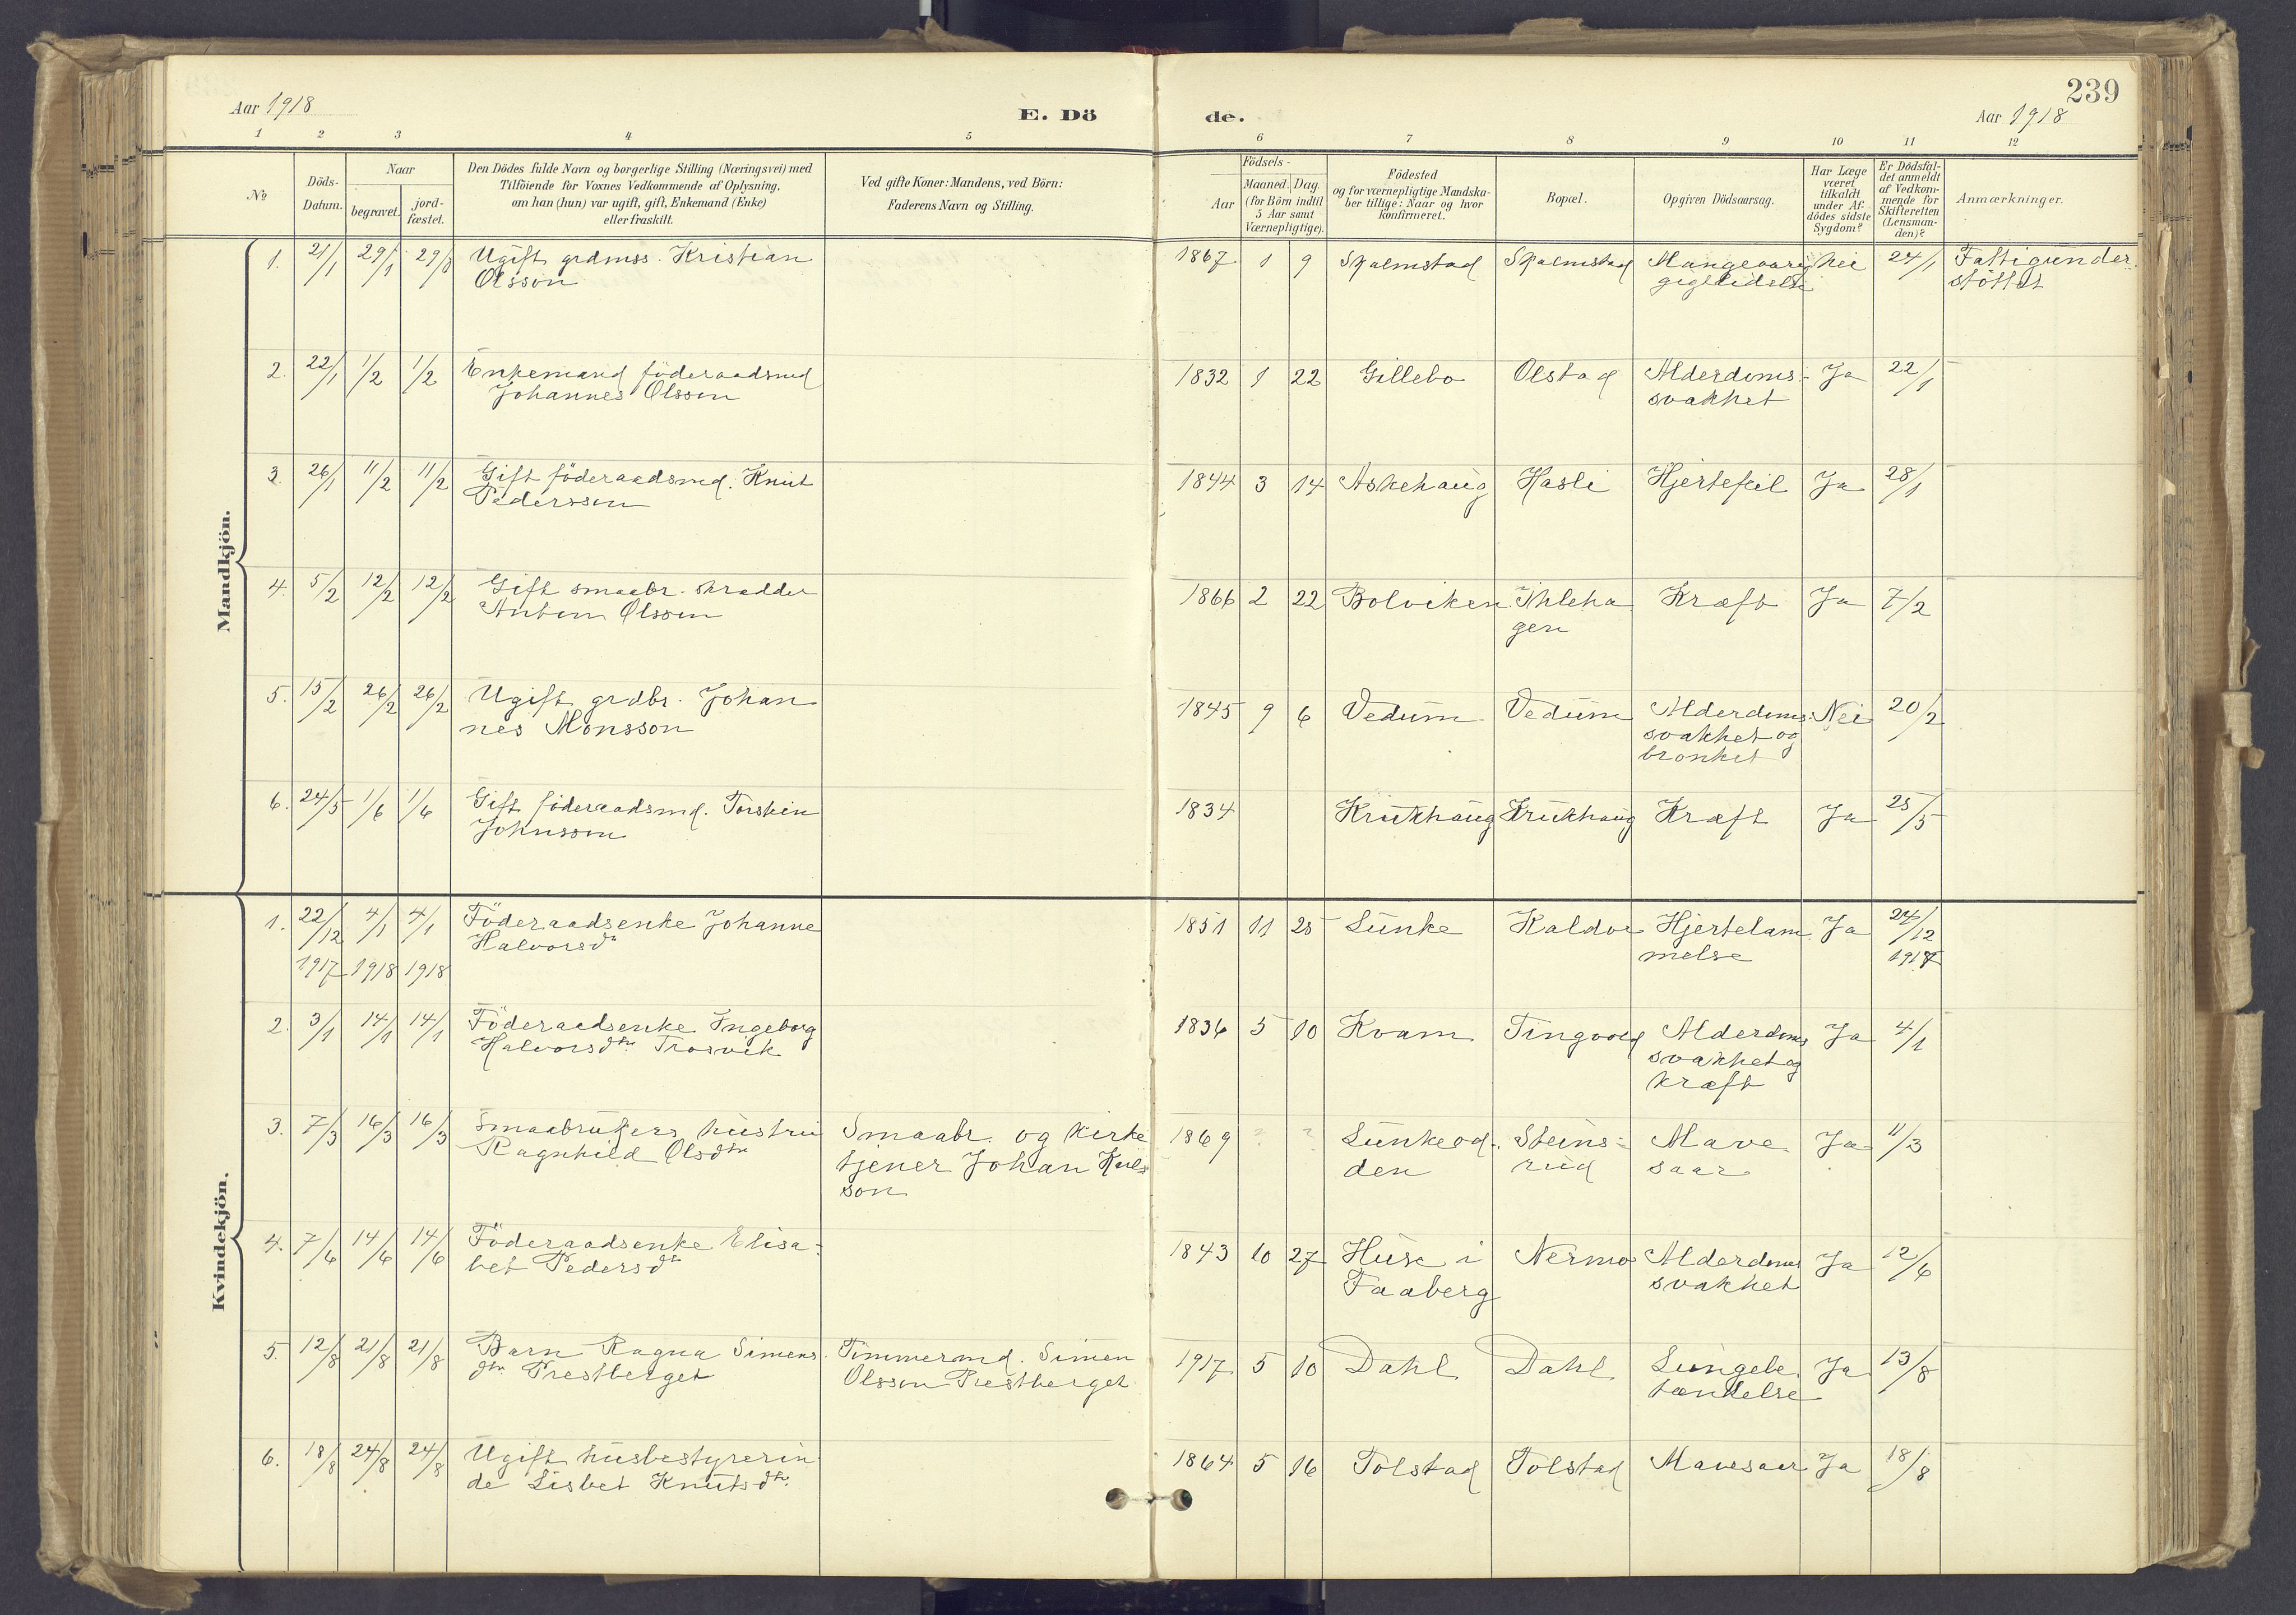 239
Aar 1918
E. Dö
de.
Aar 1918
1 2 3 4 5 6 7 8 9 10 11 12
No
Döds-
Datum.
Naar
begravet.
jord-
fæstet.
Den Dödes fulde Navn og borgerlige Stilling (Næringsvei) med
Tilföiende for Voxnes Vedkommende af Oplysning,
om han (hun) var ugift, gift, Enkemand (Enke)
eller fraskilt.
Ved gifte Koner: Mandens, ved Börn:
Faderens Navn og Stilling.
Födsels-
Aar
Maaned. Dag.
(for Börn indtil
5 Aar samt
Værnepligtige).
Födested
og for værnepligtige Mandska-
ber tillige: Naar og hvor
konfirmeret.
Bopæl.
Opgiven Dödsaarsag.
Har Læge
været
tilkaldt
under Af-
dödes sidste
Sygdom?
Er Dödsfal-
det anmeldt
af Vedkom-
mende for
Skifteretten
(Lensman-
den)?
Anmærkninger.
Mandkjön.
1. 21/1 29/1 29/1 Ugift grdmss. Kristian
Olsson
1867 1 9 Skalmstad Skalmstad Mangeaarig Nei 24/1 Fattigunder
giglidelse støttet
2. 22/1 1/2 1/2 Enkemand föderaadsmd
Johannes Olsson
1832 1 22 Gillebo Olstad Alderdoms- Ja 22/1
svakhet
3. 26/1 11/2 11/2 Gift föderaadsmd. Knut
Pedersson
1844 3 14 Askehaug Hasli Hjertefeil Ja 28/1
4. 5/2 12/2 12/2 Gift smaabr. skrædder
Anton Olsson
1866 2 22 Bolviken Ihleha Kræft Ja 7/2
gen
5. 15/2 26/2 26/2 Ugift grdbr. Johan
nes Monsson
1845 9 6 Vedum Vedum Alderdoms- Nei 20/2
svakhet og
bronkit
6. 24/5 1/6 1/6 Gift föderaadsmd. Torstein
Johnsson
1834 Krukhaug Krukhaug Kræft Ja 25/5
Kvindekjön.
1. 22/12 4/1 4/1 Föderaadsenke Johanne
Halvorsdtr
1917 1918 1918
1851 11 25 Lunke Kaldor Hjertelam Ja 24/12
melse 1917
2. 3/1 14/1 14/1 Föderaadsenke Ingeborg
Halvorsdtr. Trosvik
1836 5 10 Kvam Tingvold Alderdoms Ja 4/1
svakhet og
kræft
3. 7/3 16/3 16/3 Smaabrukers hustru Smaabr. og kirke
Ragnhild Olsdtr tjener Johan Knuts
son
1869 ? ? Lunkeod- Steins- Mave Ja 11/3
den rud saar
4. 7/6 14/6 14/6 Föderaadsenke Elisa-
bet Pedersdtr
1843 10 27 Huse i Nermo Alderdoms Ja 12/6
Faaberg svakhet
5. 12/8 21/8 21/8 Barn Ragna Simens Tømmermd. Simen
dtr. Prestberget Olsson Prestberget
1917 5 10 Dahl Dahl Lungebe Ja 13/8
tændelse
6. 18/8 24/8 24/8 Ugift husbestyrerin
de Lisbet Knutsdtr.
1864 5 16 Tolstad Tolstad Mavesaar Ja 18/8